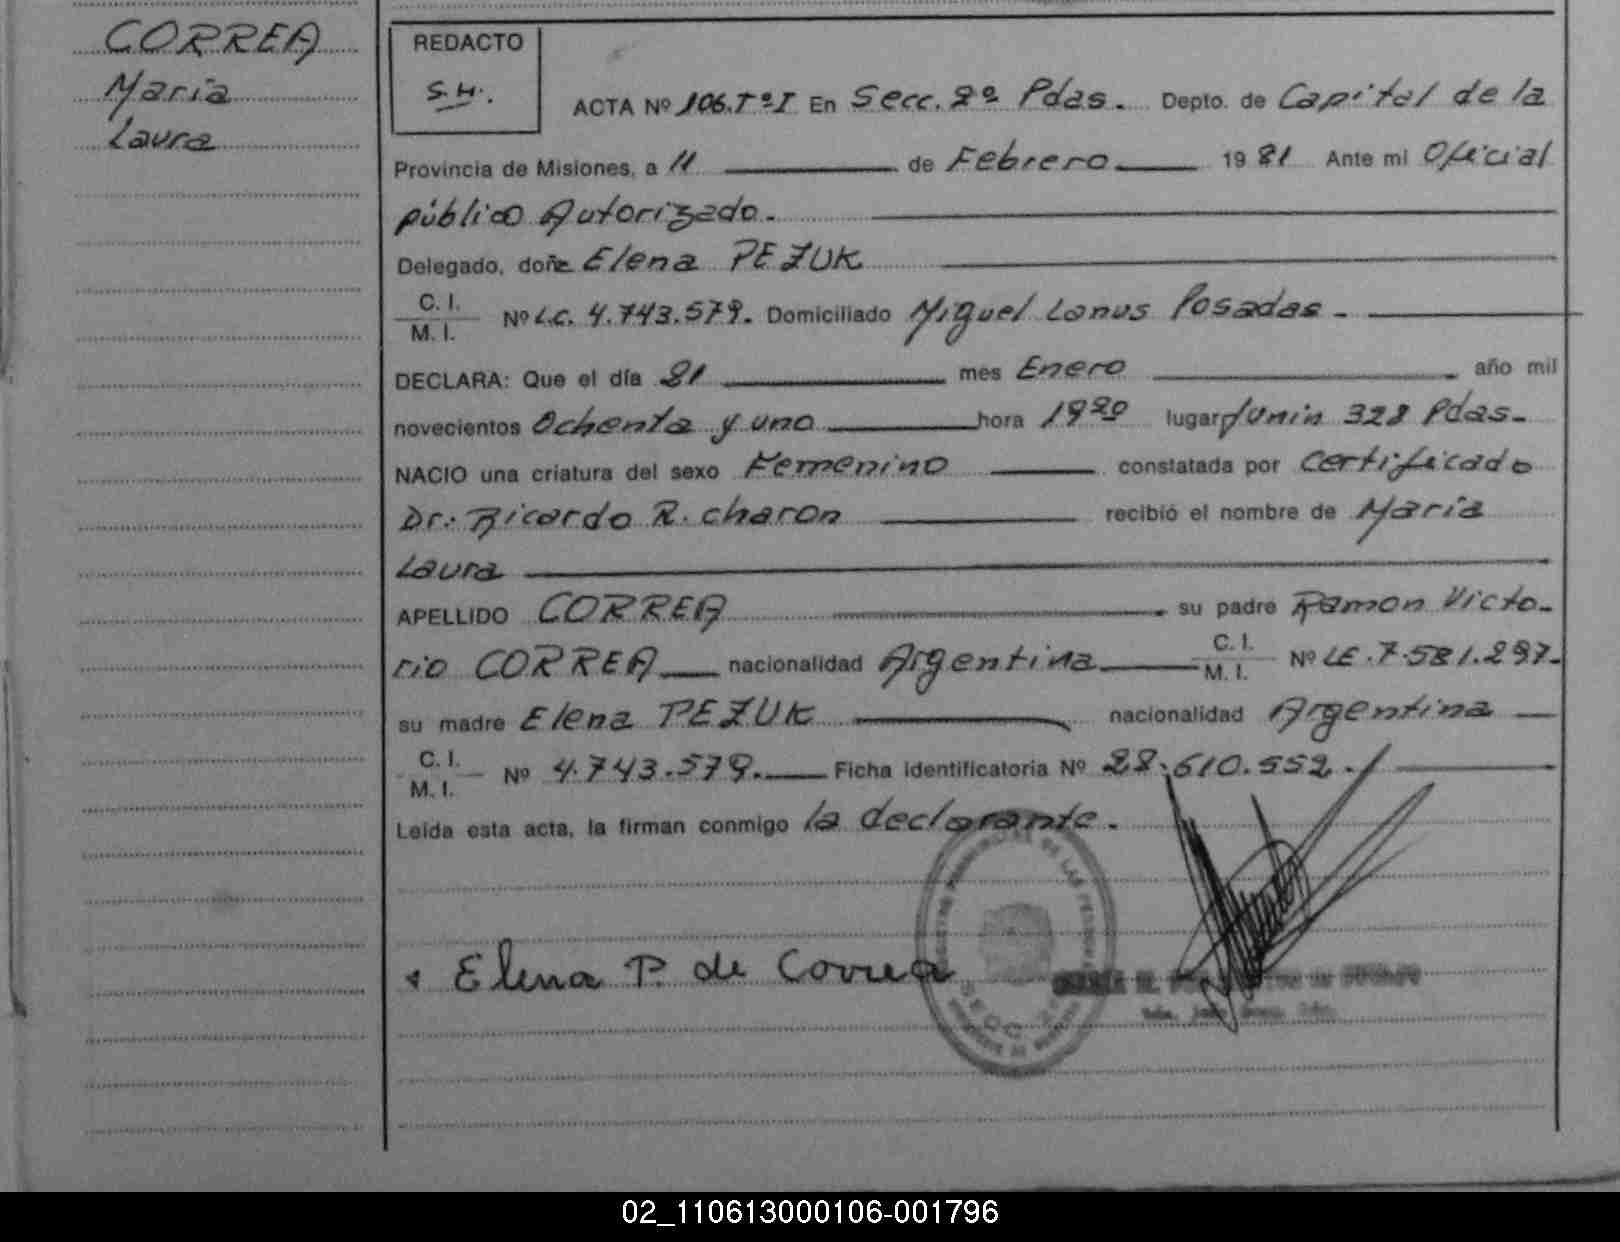 CORREA
Maria
Laura
REDACTO
S.H.
ACTA Nº 106.Tº I En Secc. 2ª Pdas. Depto. de Capital de la
Provincia de Misiones, a 11 de Febrero 1981 Ante mi Oficial
público Autorizado.
Delegado, doña Elena PEZUK
C. I.
M. I.
Nº L.C. 4.743.579. Domiciliado Miguel Lanus Posadas.
DECLARA: Que el día 21 mes Enero año mil
novecientos Ochenta y uno hora 1920 lugar Junin 328 Pdas.
NACIO una criatura del sexo Femenino constatada por Certificado
Dr. Ricardo R. Charon recibió el nombre de Maria
Laura
APELLIDO CORREA su padre Ramon Victo-
rio CORREA nacionalidad Argentina C. I. M. I. Nº LE. 7.581.297.
su madre Elena PEZUK nacionalidad Argentina
C. I.
M. I.
Nº 4.743.579. Ficha identificatoria Nº 28.610.552.
Leída esta acta, la firman conmigo la declarante.
Elena P. de Correa
02_110613000106-001796